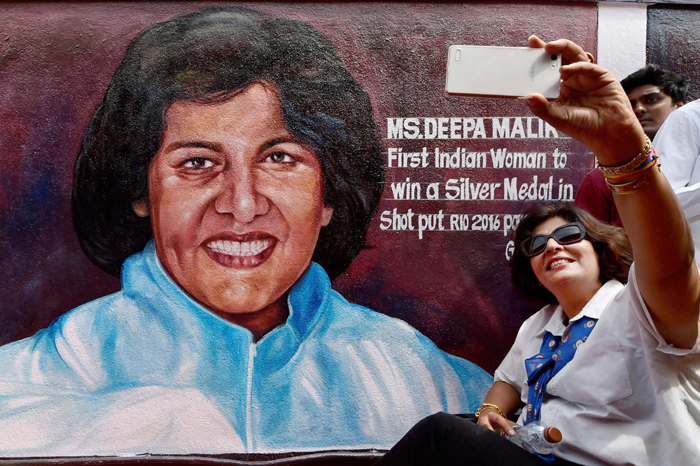 MS.DEEPA MALIK
First Indian Woman to
win a Silver Medal in
Shot put RIO 2016